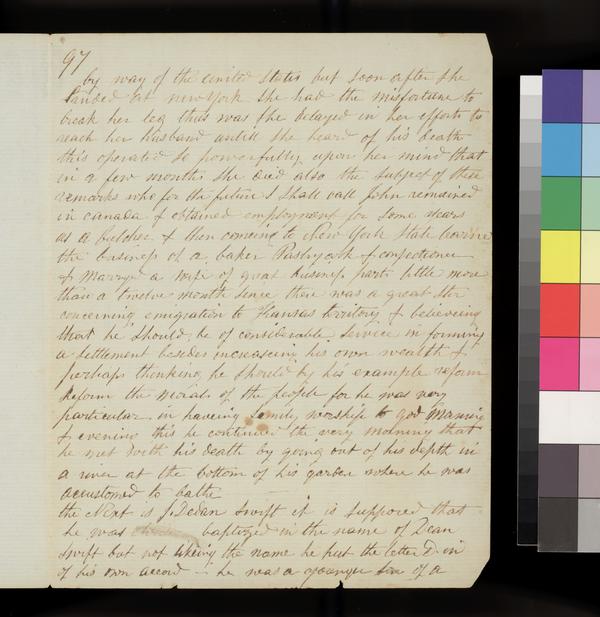 97
by way of the united States but soon after she
landed at newyork she had the misfortune to
break her leg thus was she delayed in her efforts to
reach her Husband untill she heard of his death
this operated so powerfully upon her mind that
in a few months she died also the subject of these
remarks who for the future I shall call John remained
in canada & obtained employment for some years
as a butcher & then coming to New York State learned
the business of a baker Pastrycook & confectioner
& Marryed a wife of great business parts little more
than a twelve month since there was a great stir
concerning emigration to Kansas territory & believeing
that he should be of considerable service in forming
a settlement besides increaseing his own wealth &
perhaps thinking he should by his example reform
Reform the morals of the people for he was very
particular in haveing family worship to god Morning
& evening this he continued the very morning that
he met with his death by going out of his depth in
a river at the bottom of his garden where he was
accustomed to bathe
the Next is J Dedan Swift it is supposed that
he was baptized in the name of Dean
swift but not likeing the name he put the letter D in
of his own accord - he was a younger son of a